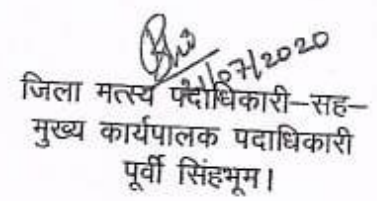 21/07/2020
जिला मत्स्य पदाधिकारी–सह–
मुख्य कार्यपालक पदाधिकारी
पूर्वी सिंहभूम।